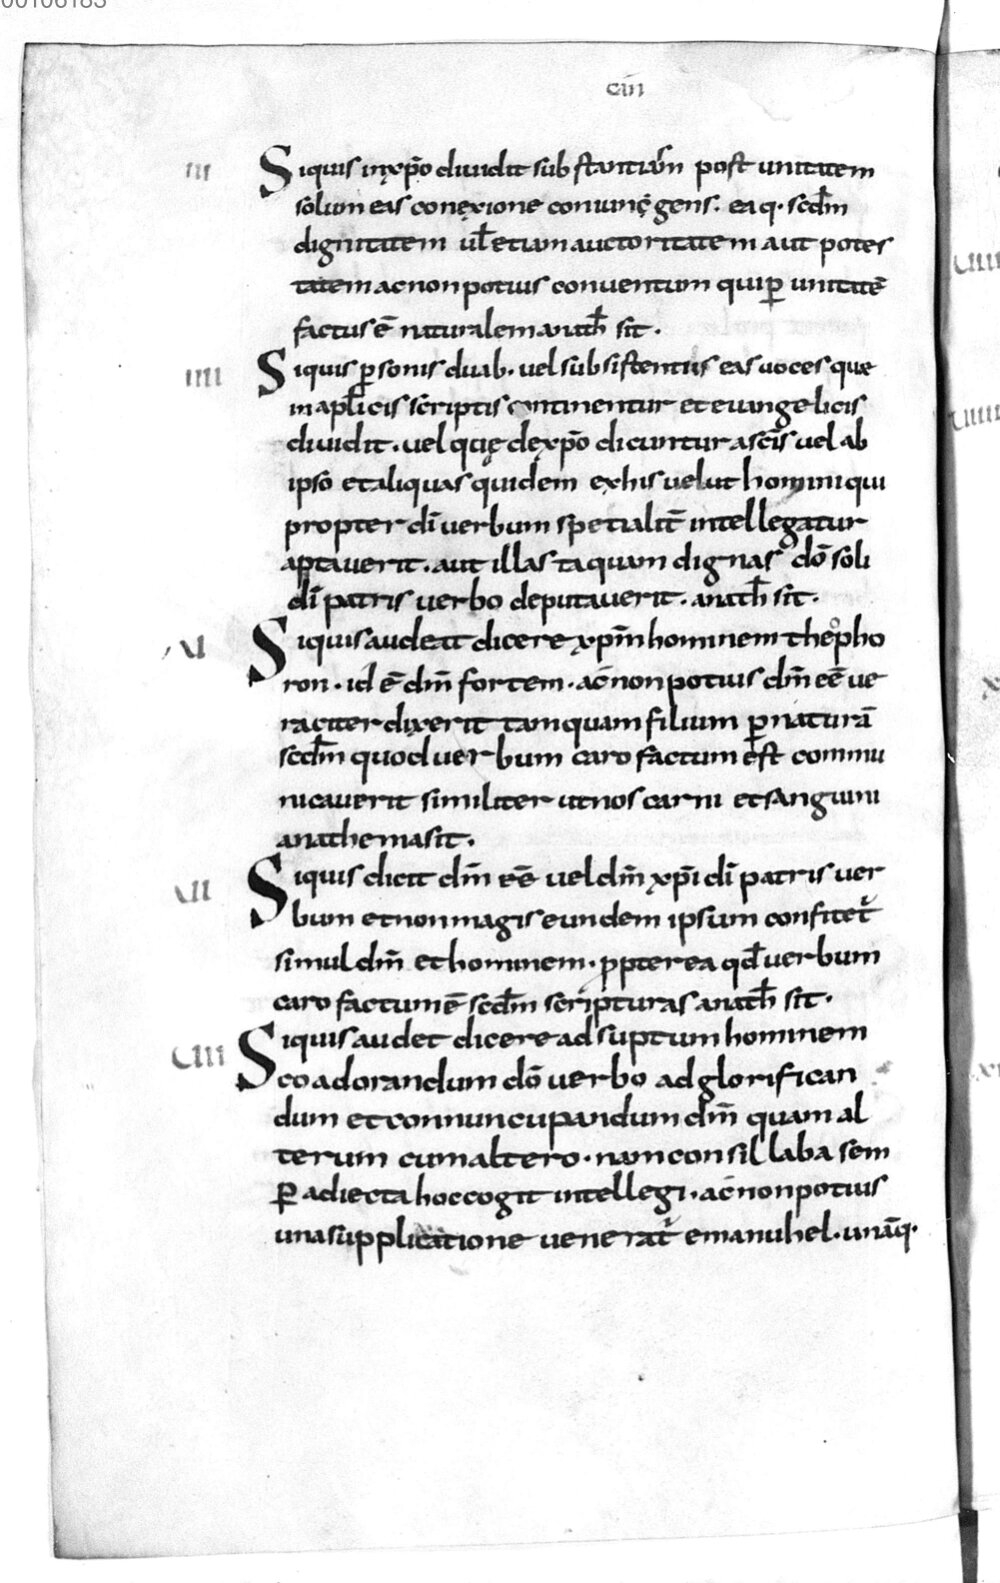 00106183
ciii
III Siquis inxp̄o diuidit substantiam post unitatem
solum eas conexione coniungens. eaq. scd̄m
dignitatem ul̄ etiam auctoritatem aut potes
tatem acnon potius conuentum quiꝑ unitatē
factus ē naturalem anath̄ sit.
IIII Siquis ꝑsonis duab. uel subsistentiis eas uoces que
in apl̄icis scriptis continentur et euangelicis
diuidit. uel qu̅e dexp̄o dicuntur asc̄is uel ab
ipso et aliquas quidem exhis uelut homini qui
propter dī uerbum spetialit̄ intellegatur
aptauerit. aut illas taquam dignas dō soli
dī patris uerbo deputauerit. anath̄ sit.
Siquis audeat dicere xp̄m hominem theopho
ron. id ē dm̄ fortem. ac̄ non potius dm̄ eē ue
raciter dixerit tamquam filium ꝑ naturā
scd̄m quod uerbum caro factum est commu
nicauerit similiter ut nos carni et sanguini
anathema sit.
Siquis dicit dm̄ eē uel dm̄ xp̄i dī patris uer
bum et non magis eundem ipsum confitet̄
simul dm̄ et hominem. ꝓpterea qd̄ uerbum
caro factum ē scd̄m scripturas anath̄ sit.
Siquis audet dicere adsuptum hominem
coadorandum dō uerbo adglorifican
dum et connuncupandum dm̄ quam al
terum cum altero. nam con sillaba sem
ꝑ adiecta hoc cogit intellegi. ac̄ non potius
una supplicatione uenerat̄ emanuhel. unāq.